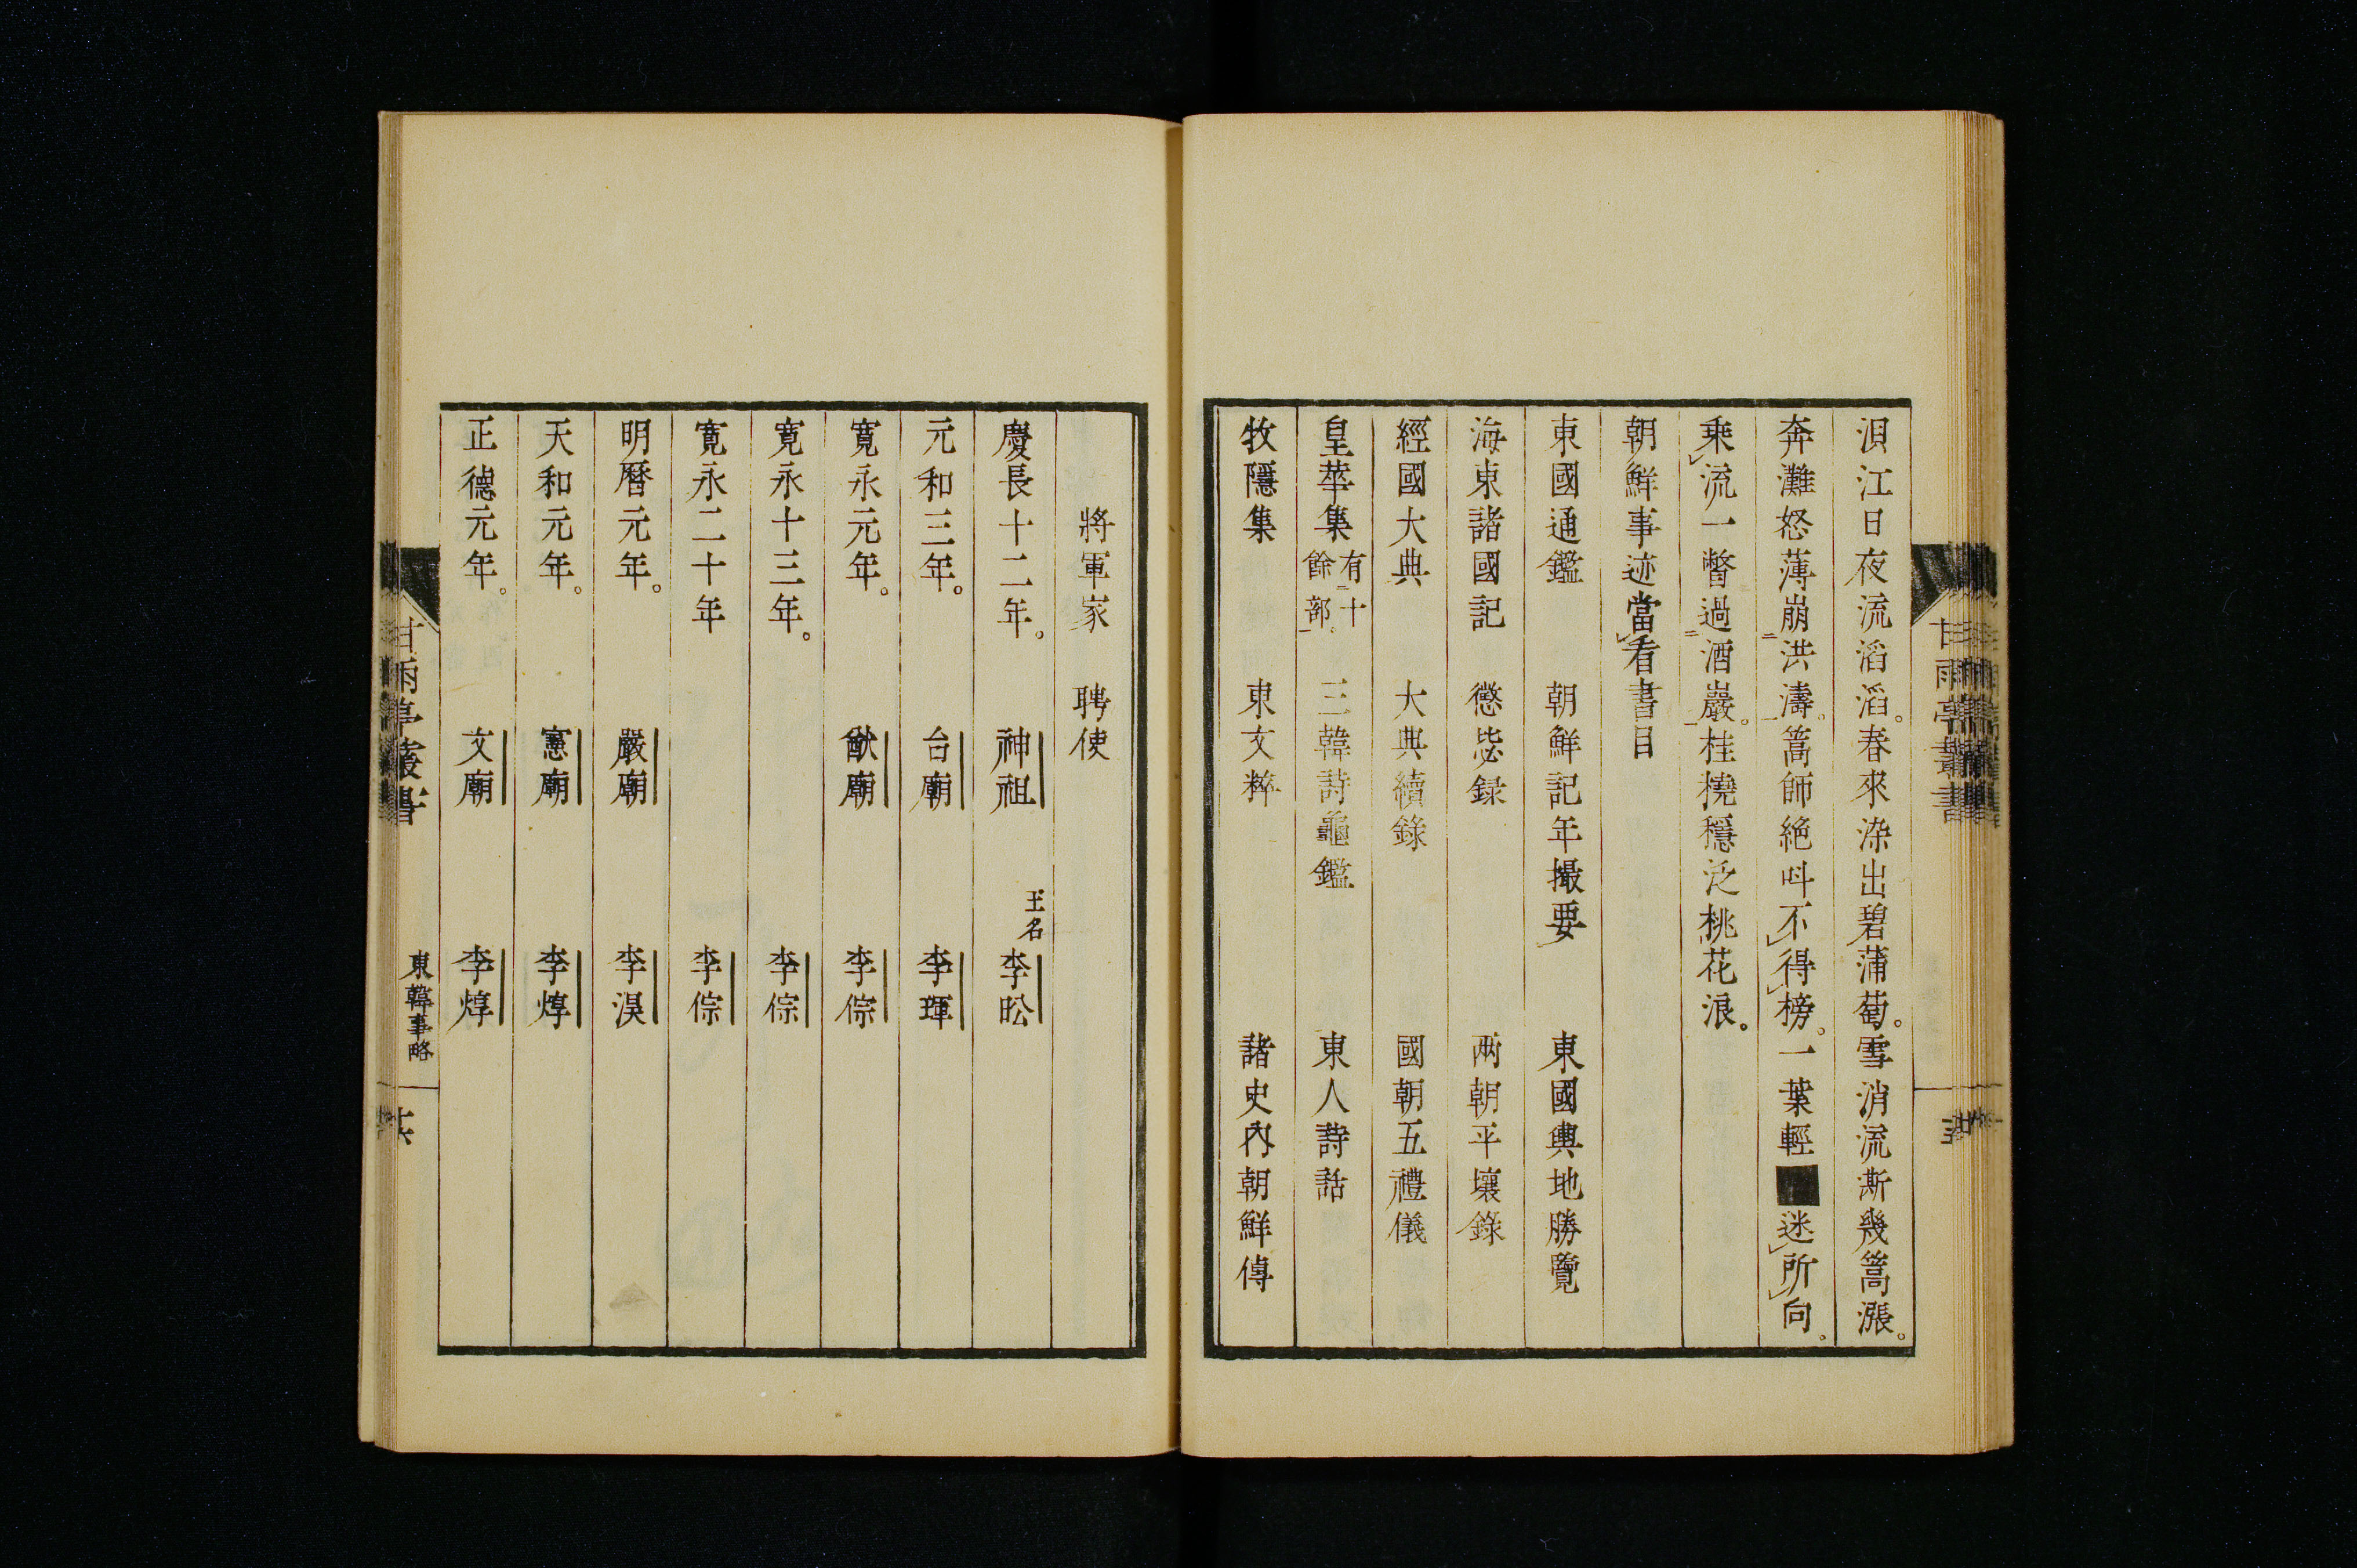 浿江日夜流滔滔。春來染出碧蒲萄。雪消流澌幾篙漲。
奔灘怒薄崩洪濤。篙師絶叫不得榜。一葉輕■迷所向。
乘流一瞥過酒巖。桂橈穩泛桃花浪。
朝鮮事迹當看書目
東國通鑑 朝鮮記年撮要 東國輿地勝覽
海東諸國記 懲毖録 兩朝平壤錄
經國大典 大典續錄 國朝五禮儀
皇華集 有十餘部 三韓詩龜鑑 東人詩話
牧隱集 東文粹 諸史內朝鮮傳
甘雨亭叢書
將軍家 聘使
慶長十二年。 神祖 王名 李昖
元和三年。 台廟 李琿
寛永元年。 猷廟 李倧
寛永十三年。 李倧
寛永二十年 李倧
明曆元年。 嚴廟 李淏
天和元年。 憲廟 李焞
正德元年。 文廟 李焞
甘雨亭叢書 東韓事略